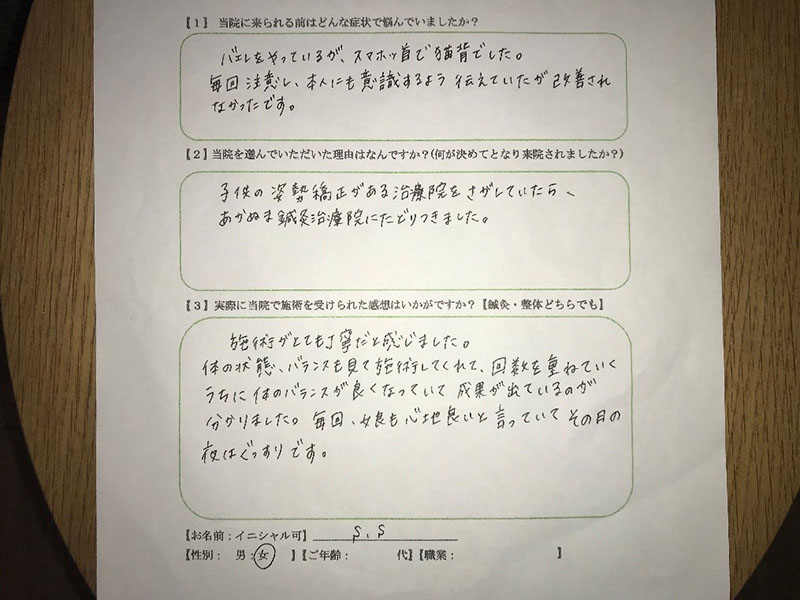 【1】 当院に来られる前はどんな症状で悩んでいましたか？
バエレをやっているが、スマホッ首で猫背でした。
毎回注意し、本人にも意識するよう伝えていたが改善され
なかったです。
【2】当院を選んでいただいた理由はなんですか？(何が決めてとなり来院されましたか？)
子供の姿勢矯正がある治療院をさがしていたら、
あかぬま鍼灸治療院にたどりつきました。
【3】実際に当院で施術を受けられた感想はいかがですか？【鍼灸・整体どちらでも】
施術がとても丁寧だと感じました。
体の状態、バランスも見て施術してくれて、回数を重ねていく
うちに体のバランスが良くなっていて成果が出ているのが
分かりました。毎回、娘も心地良いと言っていてその日の
夜はぐっすりです。
【お名前：イニシャル可】 S.S
【性別： 男：女 】【ご年齢： 代】【職業： 】